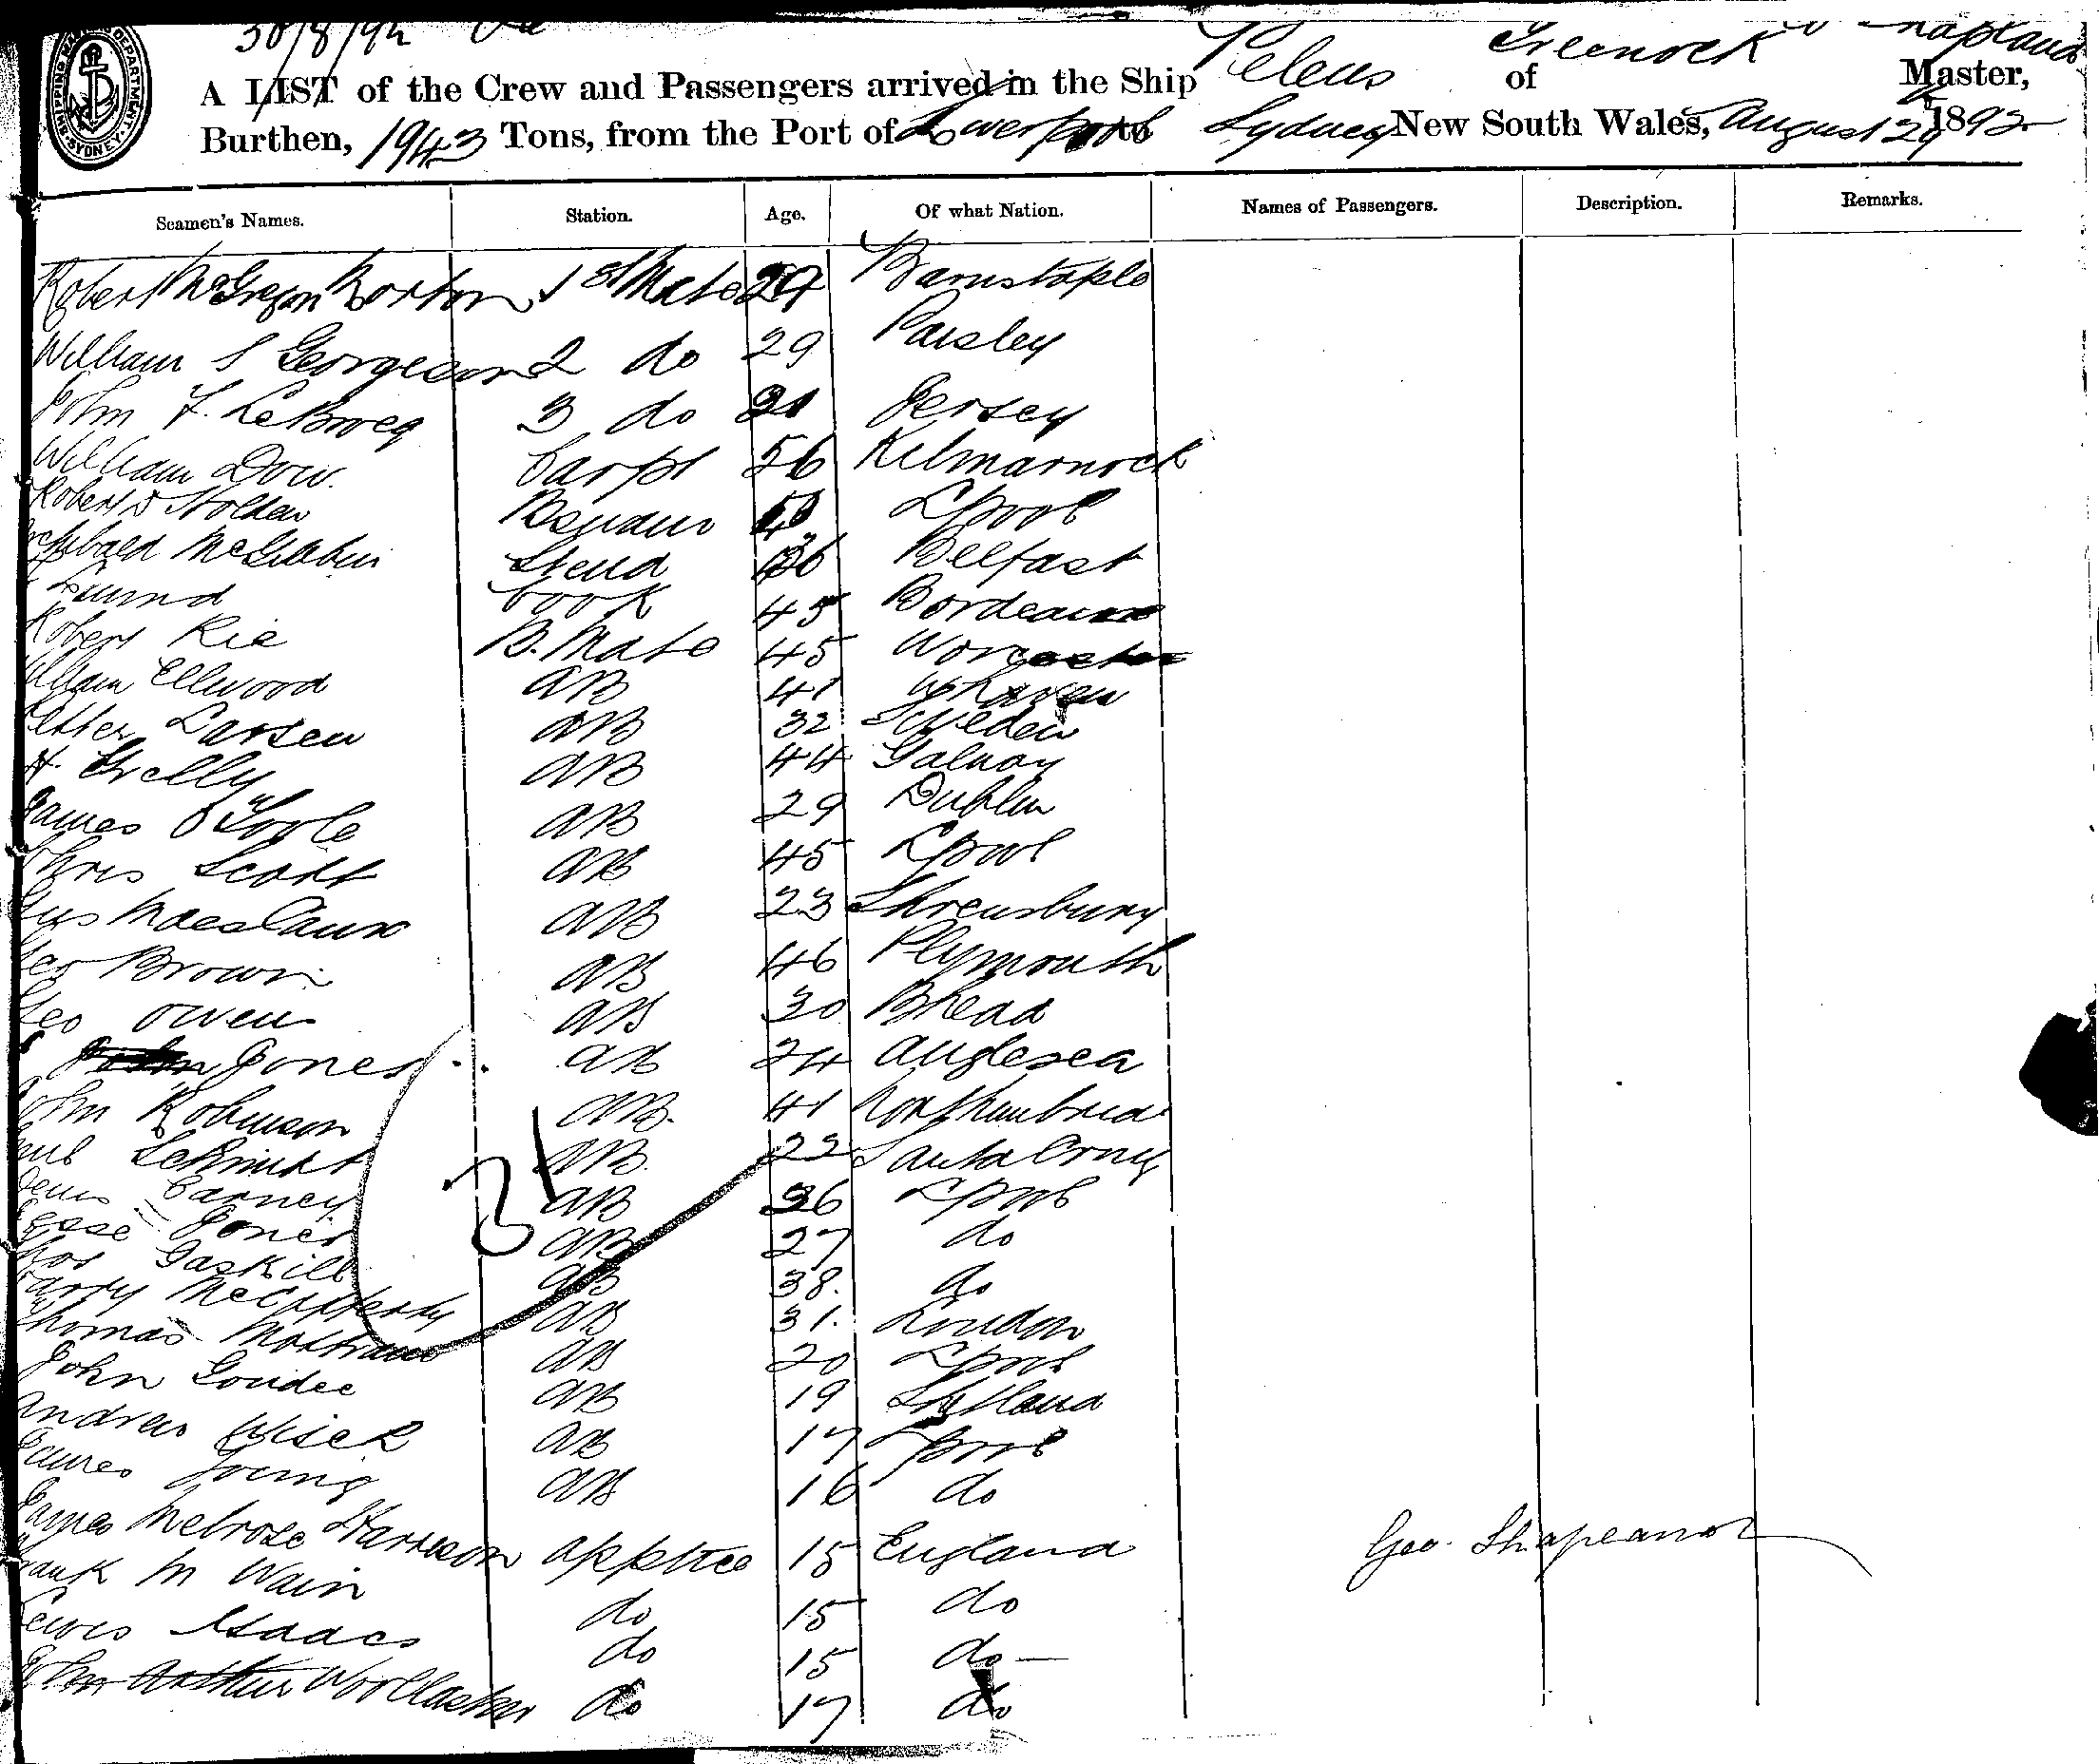 30/8/92
SHIPPING MASTER'S DEPARTMENT. SYDNEY.
A LIST of the Crew and Passengers arrived in the Ship Peleus of Greenock Master,
Burthen, 1943 Tons, from the Port of Liverpool to Sydney New South Wales, August 29 1892
Seamen's Names. Station. Age. Of what Nation. Names of Passengers. Description. Remarks.
Robert McGregor Norton 1st Mate Barnstaple
William S Georgeson 2 do 29 Paisley
John F. LeBrocq 3 do 21 Jersey
William Dow. Carpt 56 Kilmarnock
Robert Holden Bosun Lpool
Archibald Steud 36 Belfast
Cook 45 Bordeaux
Robert Rie B. Mate 45 Worcester
William Ellwood AB 41 Whaven
Petter Larsen AB 32 Sweden
H. AB 44 Galway
James O'Toole AB 29 Dublin
Chris Scott AB 45 Lpool
Gus AB 23 Shrewsbury
Geo Brown AB 46 Plymouth
Geo Owens AB 30 Bhead
Jones AB 24 Anglesea
John Robinson AB. 41
Paul Schmidt AB. 22 Santa Cruz
Denis Carney AB 36 Lpool
Jesse Jones AB 27 do
Thos Gaskill AB 38. do
Harry McCafferty AB 31. London
Thomas AB 20 Lpool
John Goudee AB 19 Shetland
Andrew Wisek AB 17 Lpool
James Young AB 16 do
James Melrose Harrison Apptce 15 England
Frank M Wain do 15 do
Lewis Isaacs do 15 do
John Arthur Woollaston do 17 do
31
Geo.